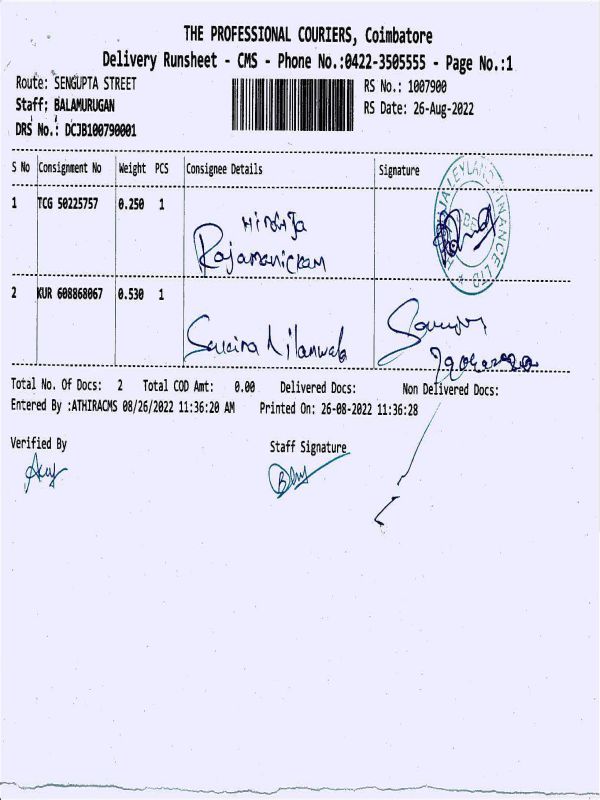 THE PROFESSIONAL COURIERS, Coimbatore
Delivery Runsheet - CMS - Phone No.:0422-3505555 - Page No.:1
Route: SENGUPTA STREET
RS No.: 1007900
Staff: BALAMURUGAN
RS Date: 26-Aug-2022
DRS No.: DCJB100790001
S No Consignment No Weight PCS Consignee Details Signature
1 TCG 50225757 0.250 1
Rajamanickam
LEYLAND FINANCE LTD
2 KUR 608868067 0.530 1
Total No. Of Docs: 2 Total COD Amt: 0.00 Delivered Docs: Non Delivered Docs:
Entered By :ATHIRACMS 08/26/2022 11:36:20 AM Printed On: 26-08-2022 11:36:28
Verified By
Staff Signature